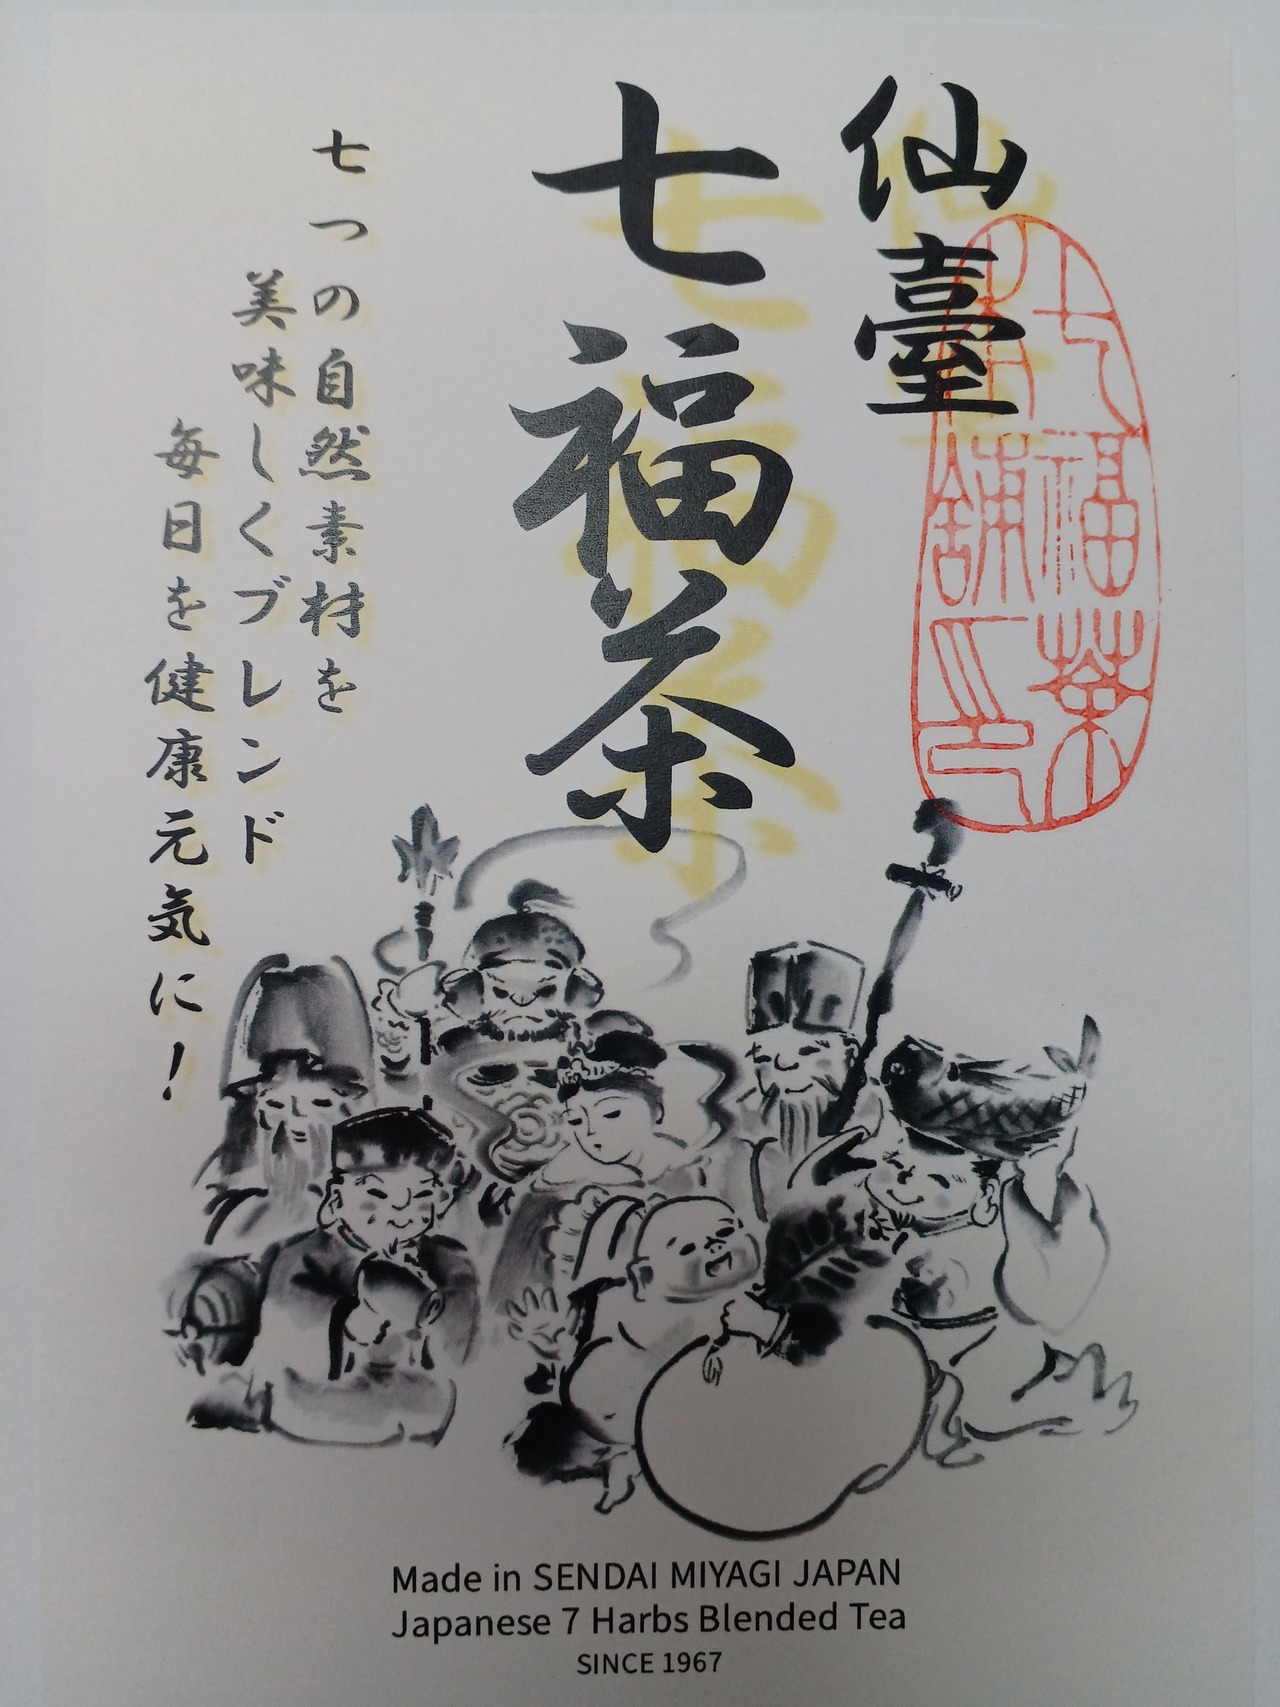 仙臺
七福茶
七福茶
本舗印
七つの自然素材を
美味しくブレンド
毎日を健康元気に！
Made in SENDAI MIYAGI JAPAN
Japanese 7 Harbs Blended Tea
SINCE 1967